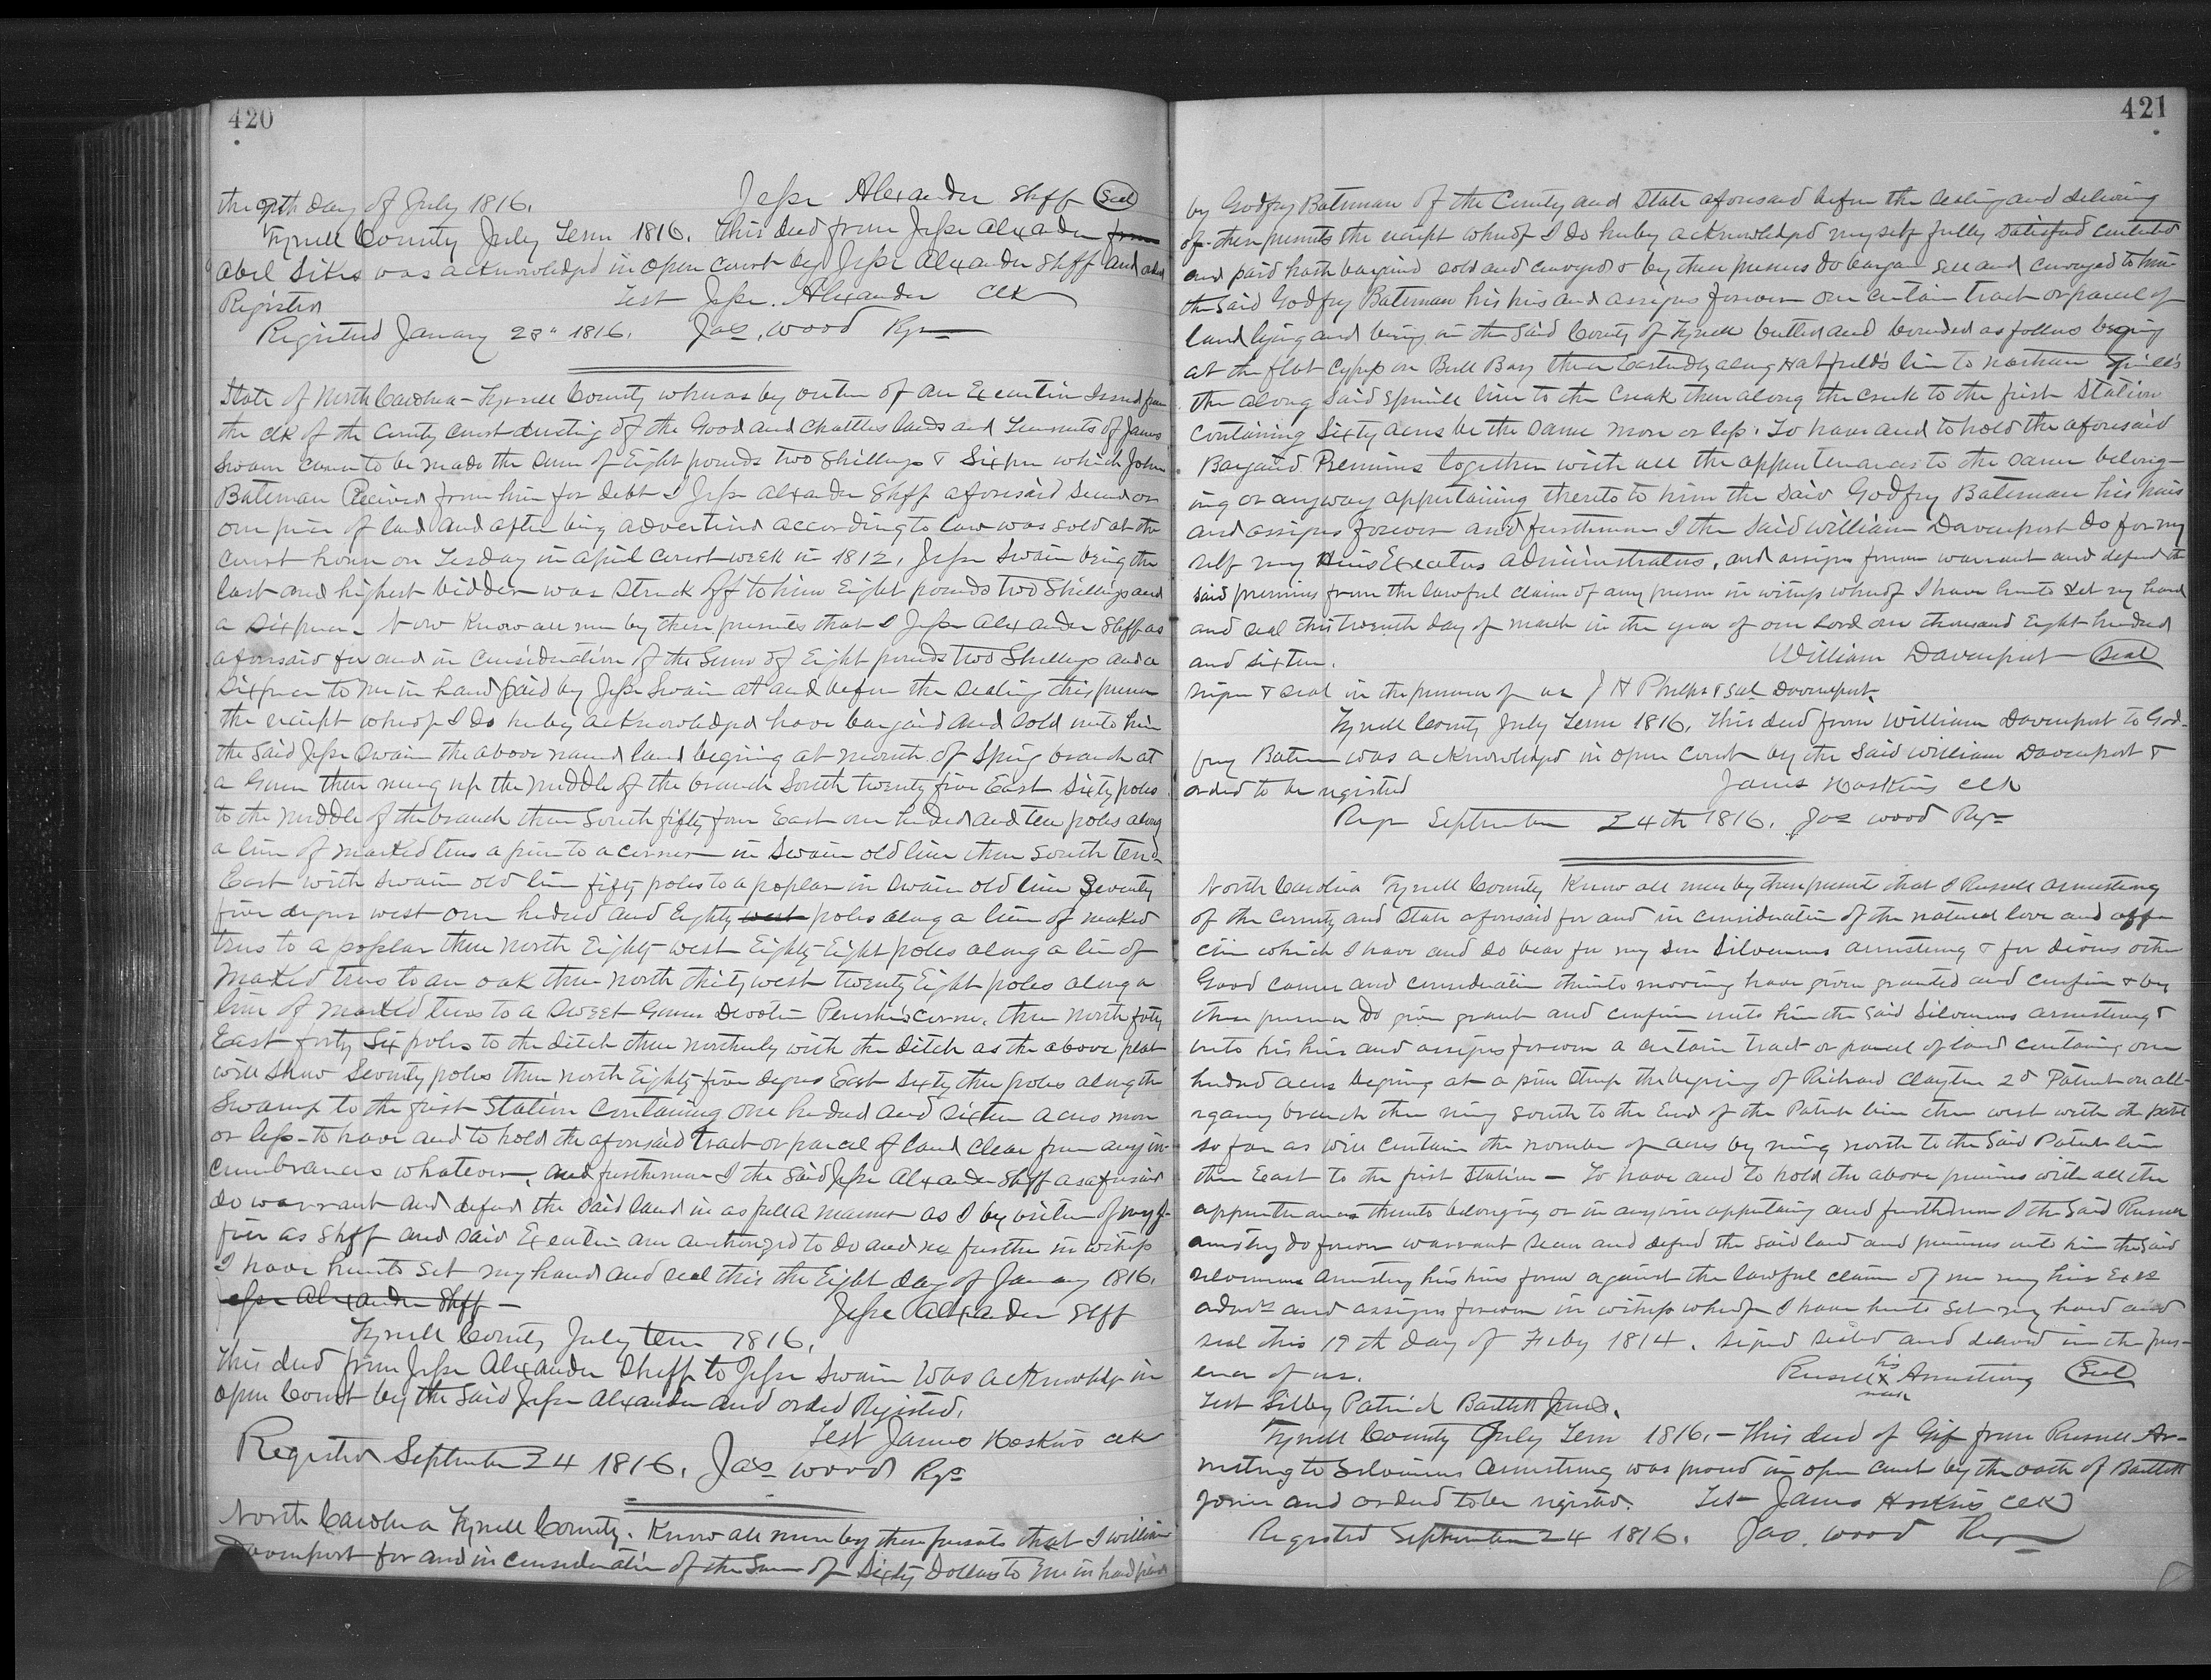 420
the 9th day of July 1816. Jesse Alexander Shff Seal
Tyrrell County July Term 1816. This deed from Jesse Alexander from
Abel Sikes was acknowledged in open court by Jesse Alexander Shff and
Register Test Jesse. Alexander Clk
Registered January 28" 1816. Jas. Wood Rgr
State of North Carolina - Tyrrell County whereas by virtue of an Execution Issued from
the clk of the County court directing of the Good and chattles lands and Tenments of James
Swain cause to be made the sum of Eight pounds two Shillings & Sixpence which John
Bateman Recived from him for debt I Jesse Alexander Shff aforesaid on
one piece of land and after being advertised according to law was sold at the
court house on Tesday in April court week in 1812. Jesse Swain being the
last and highest bidder was Struck off to him Eight pounds two Shillings and
a Sixpence. Now Know all men by these presents that I Jesse Alexander Shff as
aforesaid for and in consideration of the Sum of Eight pounds two Shillings and a
Sixpence to me in hand paid by Jesse Swain at and before the sealing this presen
the reciept whereof I do hereby acknowledged have bargaind and sold unto him
the said Jesse Swain the above named land begining at mouth of Spring branch at
a Gum then runing up the middle of the branch South twenty five East Sixty poles
to the middle of the branch then South fifty four East one hundred and ten poles along
a line of marked trees a pine to a corner in Swain old line then south ten d
East with Swain old line fifty poles to a poplar in Swain old line Seventy
five degres west one hundred and Eighty west poles along a line of marked
trees to a poplar then north Eighty west Eighty Eight poles along a line of
marked trees to an oak then north thirty west twenty Eight poles along a
line of marked trees to a Sweet Gum Corner. then north forty
East forty Six poles to the ditch then northerly with the ditch as the above plat
will shew Seventy poles then north Eighty five degres East Sixty three poles along the
Swamp to the first Station Containing one hundred and sixteen acres more
or less - to have and to hold the aforesaid tract or parcel of land clear from any in-
cumbrances whatever, and furthermore I the said Jesse Alexander Shff as aforesaid
do warrant and defend the said land in as full a manner as I by virtue of my of-
fice as Shff and said Execution am authorized to do and no further in witness
I have hereunto set my hand and seal this the Eight day of January 1816.
Jesse Alexander Shff - Jesse Alexander Shff
Tyrrell County July Term 1816.
This deed from Jesse Alexander Sheff to Jesse Swain was acknowledge in
open Court by the Said Jesse Alexander and orded Registed.
Test James Hoskins clk
Registered September 24 1816. Jas Wood Rgr
North Carolina Tyrrell County. Know all men by these presents that I William
Davenport for and in consideration of the Sum of Sixty Dollars to me in hand paid
421
by Godfry Bateman of the County and State aforesaid before the sealing and delivering
of these presents the reciept whereof I do hereby acknowledged myself fully satisfied contented
and paid hath bargaind sold and conveyed & by these presens do bargan sell and conveyed to him
the said Godfry Bateman his heirs and assigns forever one certain tract or parcel of
land lying and being in the said County of Tyrrell butted and bounded as follows begining
at the flat Cypress on Bull Bay then Easterdly along Hatfields line to Spuills
then along said Spruill line to the Creak then along the creek to the first Station
containing Sixty acres be the same more or less. To have and to hold the aforesaid
Bargaind Premises together with all the appurtenances to the same belong-
ing or anyway appertaining thereto to him the said Godfry Bateman his heirs
and assigns forever and furthermore I the said William Davenport do for my
self my Heirs Executors administrators, and assigns forever warrant and defend the
said premises from the lawful claim of any person in witness whereof I have hereunto set my hand
and seal this day of March in the year of our Lord one thousand Eight hundred
and sixteen. William Davenport Seal
Signe & seal in the presence of us J H Phelps & Davenport.
Tyrrell County July Term 1816. This deed from William Davenport to God-
frey Batem was acknowledged in open Court by the Said William Davenport &
orded to be registed James Hoskins Clk
Regr September 24th 1816. Jas Wood Rgr
North Carolina Tyrrell County Know all men by these present that I Russell Armstrong
of the County and State aforesaid for and in consideration of the natural love and affe
ction which I have and do bear for my son Silvanus Armstrong & for divers other
Good cause and consideration thereunto moving have given granted and confirm & by
these presence do give grant and confirm unto him the said Silvanus Armstrong &
unto his heirs and assigns forever a certain tract or parcel of land containing one
hundred acres begining at a pine stump the begining of Richard Clayton 2d Patent on all-
branch then runing south to the End of the Patent line then west with the patent
so far as will contain the number of acres by runing north to the said Patent line
then East to the first Station - To have and to hold the above premises with all the
appurtenances thereunto belonging or in anywise appertaing and furthermore I the said Russell
Armstrong do forever warrant secure and defend the said land and premises unto him the said
Silvanus Armstrong his heirs forever against the lawful claim of me my heirs Exrs
admrs and assigns forever in witness whereof I have hereunto set my hand and
seal this 19th day of Feby 1814. signed sealed and delivered in the pres-
ence of us. Russell his X mark Armstrong Seal
Test Silby Patrick Bartlett
Tyrrell County July Term 1816. - This deed of Gift from Russell Ar-
mstrong to Silvanus Armstrong was proved in open court by the oath of Bartlett
and ordered to be registed. Test James Hoskins Clk
Registed September 24 1816. Jas. Wood Rgr